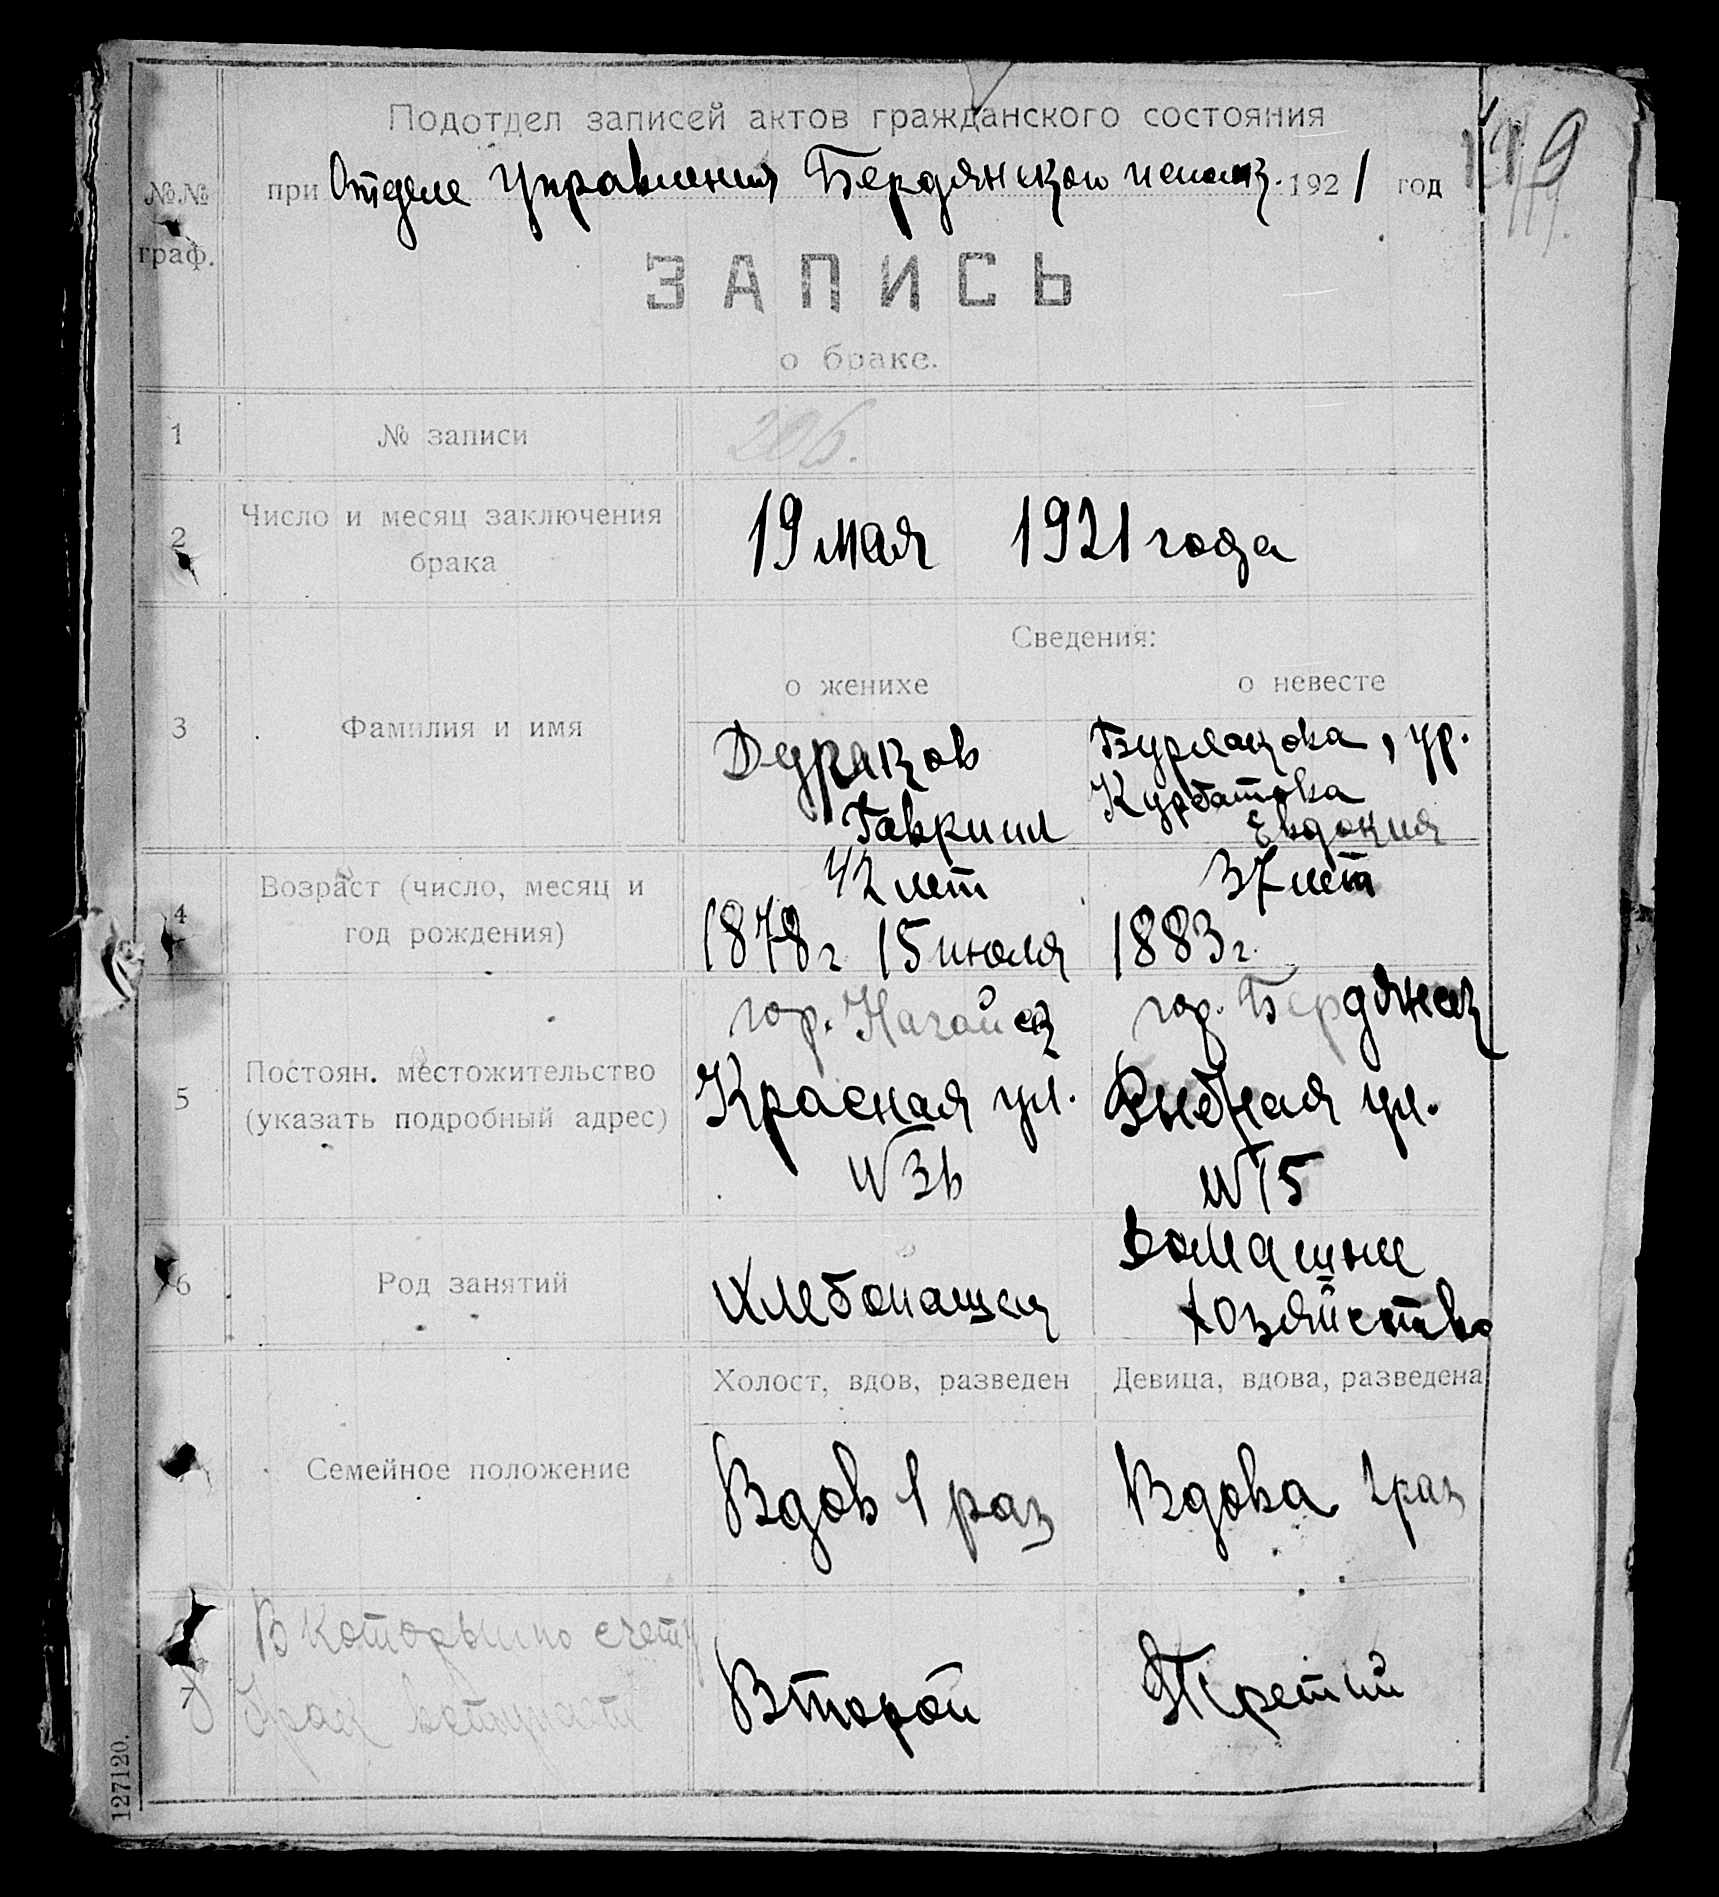 Подотдел записей актов гражданского состояния
№№ граф.
при Отделе Управления Бердянском исполк. 1921 год
119
ЗАПИСЬ
о браке.
1 № записи 206.
2 Число и месяц заключения брака
19 мая 1921 года
Сведения:
о женихе о невесте
3 Фамилия и имя
Дураков
Гавриил
Бурлакова, ур.
Курбатова
Евдокия
4 Возраст (число, месяц и
год рождения)
42 лет
1878 г 15 июля
37 лет
1883 г.
5 Постоян. местожительство
(указать подробный адрес)
гор. Нагайск
Красная ул.
№ 36
гор. Бердянск
Рыбная ул.
№ 15
6 Род занятий
Хлебопашец
Домашнее
хозяйство
Холост, вдов, разведен
Девица, вдова, разведена
Семейное положение
Вдов 1 раз
Вдова 2 раз
7 В который по счету
брак вступает
Второй
Третий
127120.